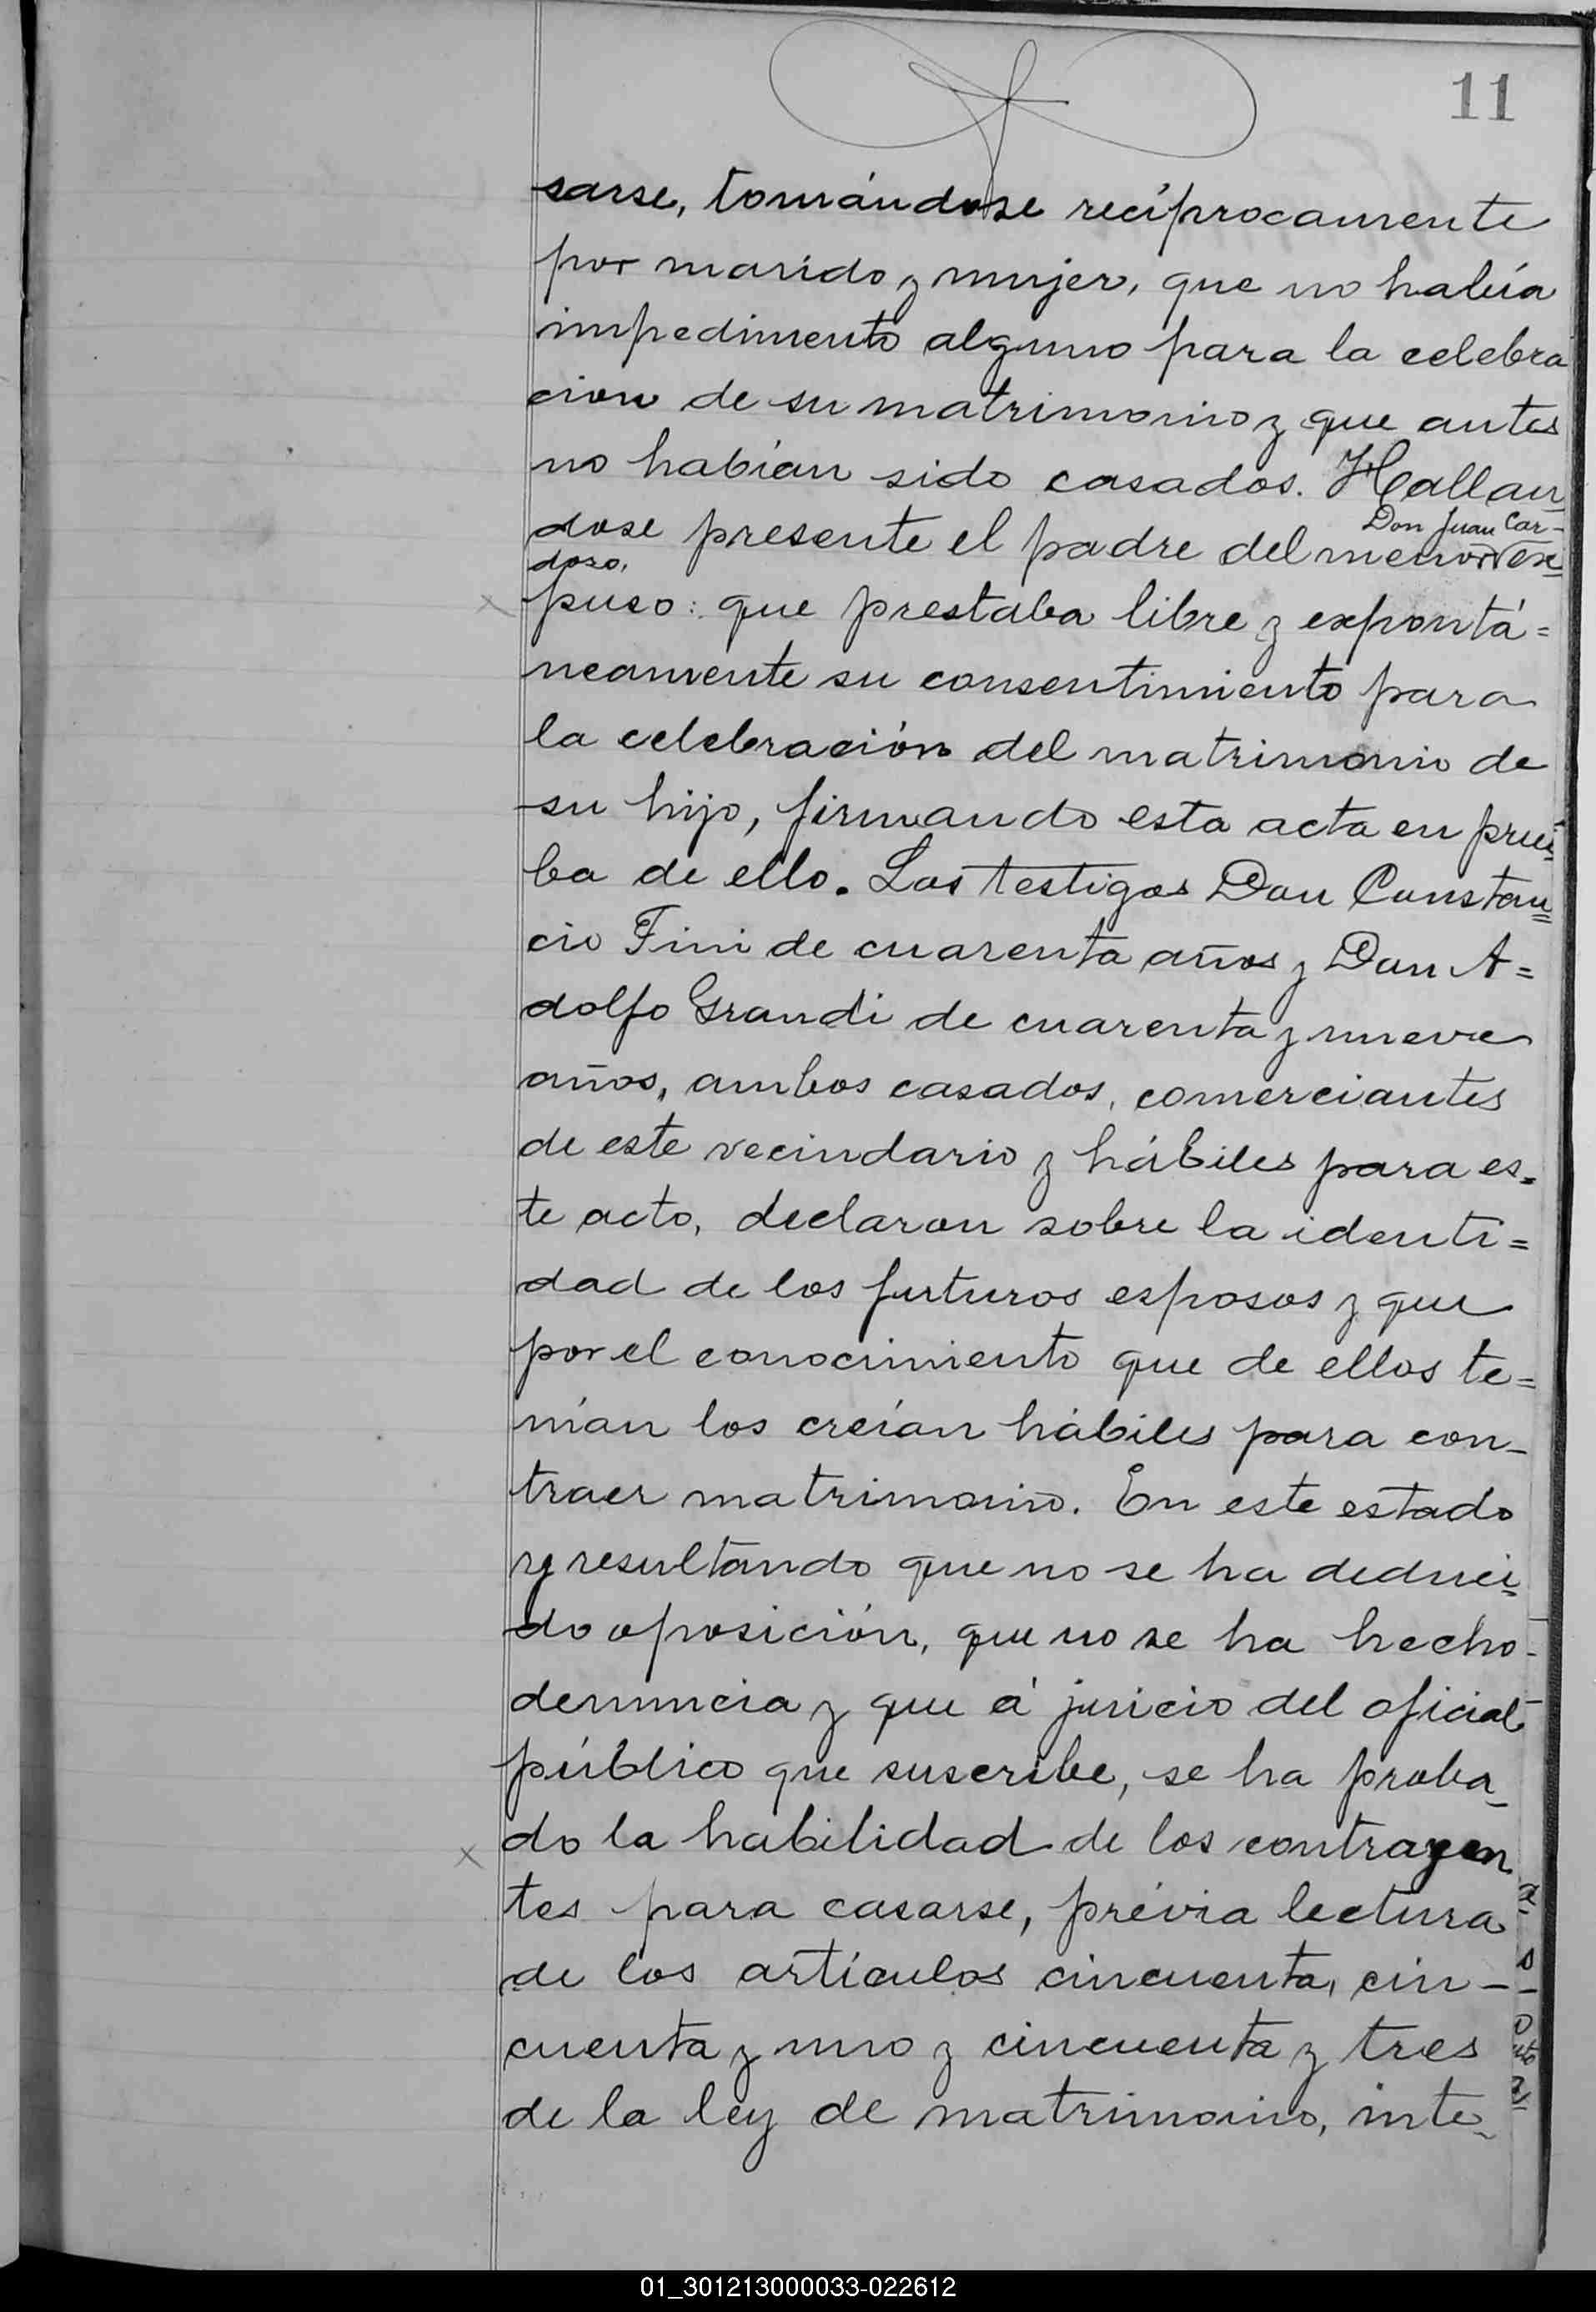 11
sarse, tomándose recíprocamente
por marido y mujer, que no había
impedimento alguno para la celebra
cion de su matrimonio y que antes
no habían sido casados. Hallan
dose presente el padre del menor Don Juan Car-
doso, ex
puso: que prestaba libre y expontá=
neamente su consentimiento para
la celebración del matrimonio de
su hijo, firmando esta acta en prue
ba de ello. Los testigos Don Constan
cio Fini de cuarenta años y Don A=
dolfo Grandi de cuarenta y nueve
años, ambos casados, comerciantes
de este vecindario y hábiles para es=
te acto, declaran sobre la identi=
dad de los futuros esposos y que
por el conocimiento que de ellos te=
nían los creían hábiles para con-
traer matrimonio. En este estado
y resultando que no se ha deduci
do oposición, que no se ha hecho
denuncia y que á juicio del oficial
público que suscribe, se ha proba
do la habilidad de los contrayen
tes para casarse, prévia lectura
de los artículos cincuenta, cin-
cuenta y uno y cincuenta y tres
de la ley de matrimonio, inte
01_301213000033-022612